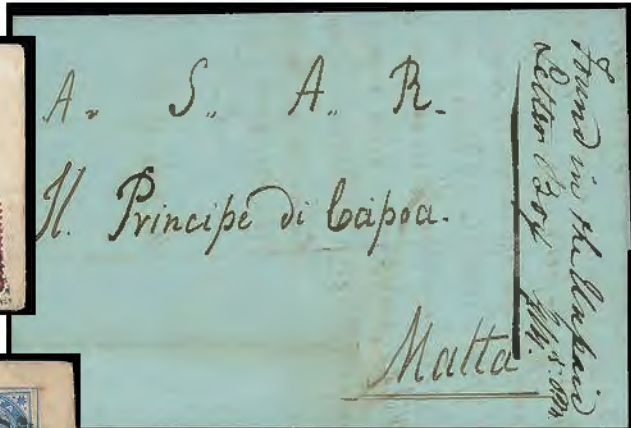 A. S.. A.. R.
Il Principe di Capoa.
Malta
Found in the Unpaid
Letter Box